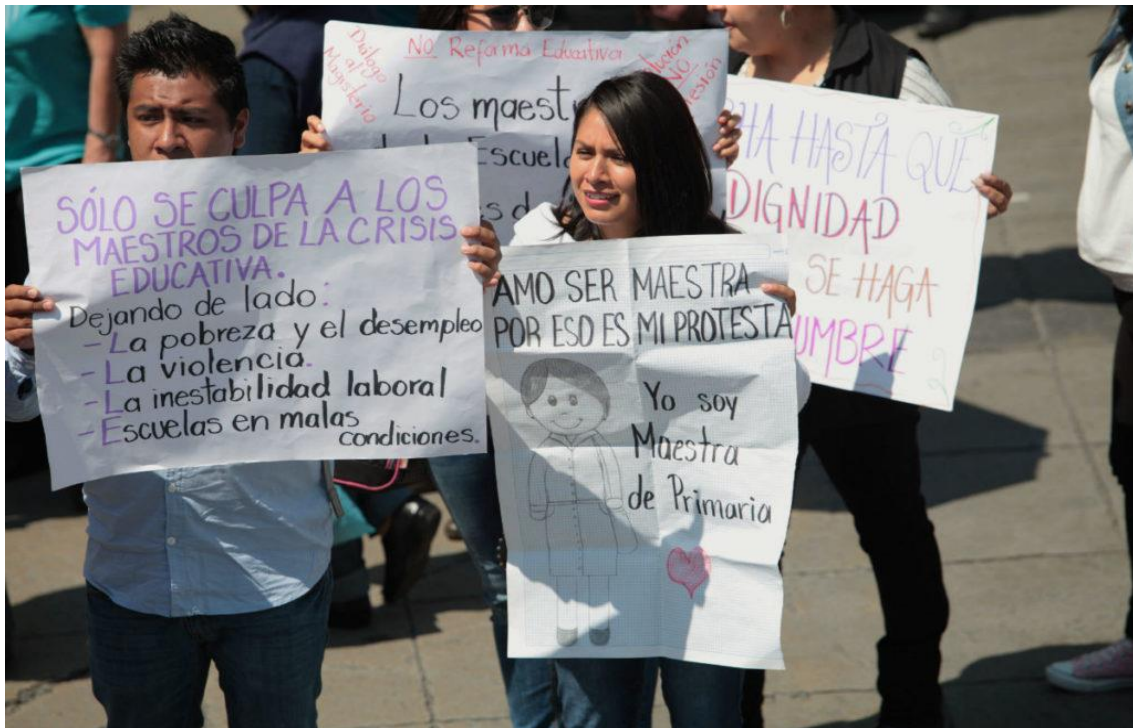 SÓLO SE CULPA A LOS
MAESTROS DE LA CRISIS
EDUCATIVA.
Dejando de lado:
- La pobreza y el desempleo
- La violencia.
- La inestabilidad laboral
- Escuelas en malas
condiciones.
Diálogo
al
Magisterio
NO Reforma Educativa
NO
Los
Escuela
AMO SER MAESTRA
POR ESO ES MI PROTESTA
Yo soy
Maestra
de Primaria
HASTA QUE
DIGNIDAD
SE HAGA